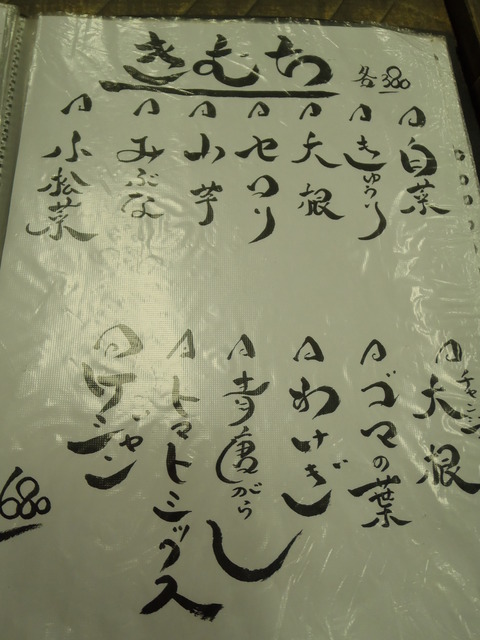 きむち 各380
白菜
きゅうり
大根
セロリ
山芋
みぶな
小松菜
大根チャンジ
ゴマの葉
わけぎ
青唐がらし
トマトミックス
ケジャン
680